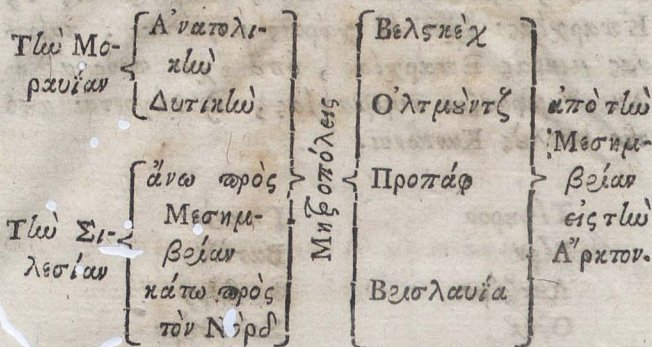 Τὼ Μο-
ραυΐαν
Ἀνατολι-
κὼ
Δυτικὼ
Τὼ Σι-
λεσίαν
ἄνω πρὸς
Μεσημ-
βρίαν
κάτω πρὸς
τὸν Νὸρδ
Μητροπόλεις
Βελςκὲχ
Ὀλτμȣ̀ντζ
Προπάφ
Βρισλαυΐα
ἀπὸ τὼ
Μεσημ-
βρίαν
εἰς τὼ
Ἄρκτον.